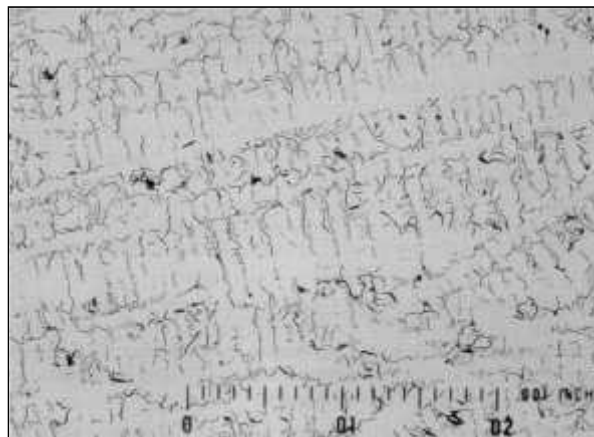 0 01 02 001 INCH